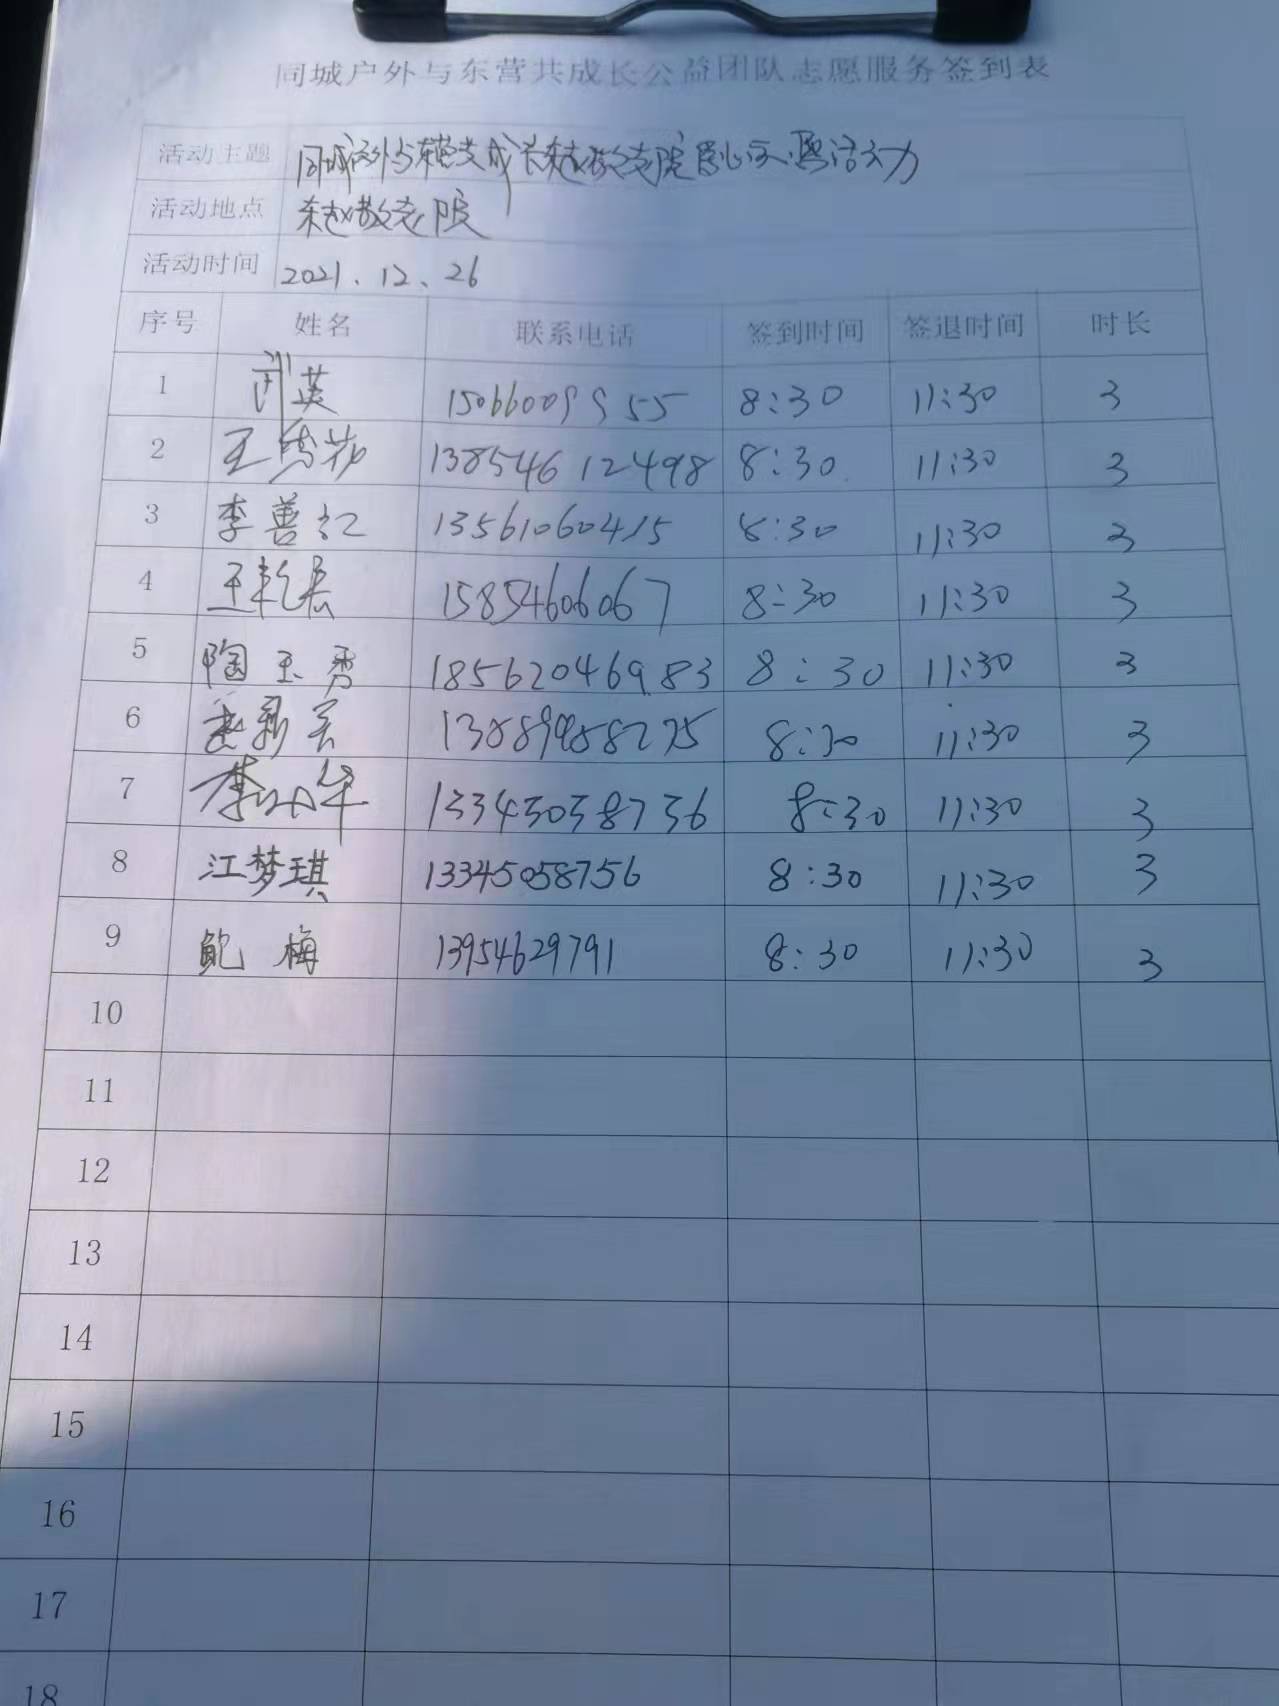 同城户外与东营共成长公益团队志愿服务签到表
活动主题 同城户外与东营共成长东赵敬老院 活动
活动地点 东赵敬老院
活动时间 2021.12、26
序号 姓名 联系电话 签到时间 签退时间 时长
1 武英 15066009955 8:30 11:30 3
2 王 13854612498 8:30 11:30 3
3 李善红 13561060415 8:30 11:30 3
4 王乾长 15854606067 8:30 11:30 3
5 陶玉秀 18562046983 8:30 11:30 3
6 8:30 11:30 3
7 李 华 8:30 11:30 3
8 江梦琪 13345058756 8:30 11:30 3
9 鲍梅 13954629791 8:30 11:30 3
10
11
12
13
14
15
16
17
18